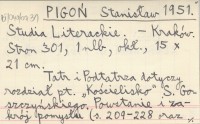 PIGOŃ Stanisław 1951.
Studia Literackie. – Kraków.
Stron 301, 1 nlb, okł., 15 x
21 cm.
Tatr i Podtatrza dotyczy
rozdział pt. „Kościelisko" S. Go-
szczyńskiego. Powstanie i za-
krój pomysłu (s. 209-228 oraz